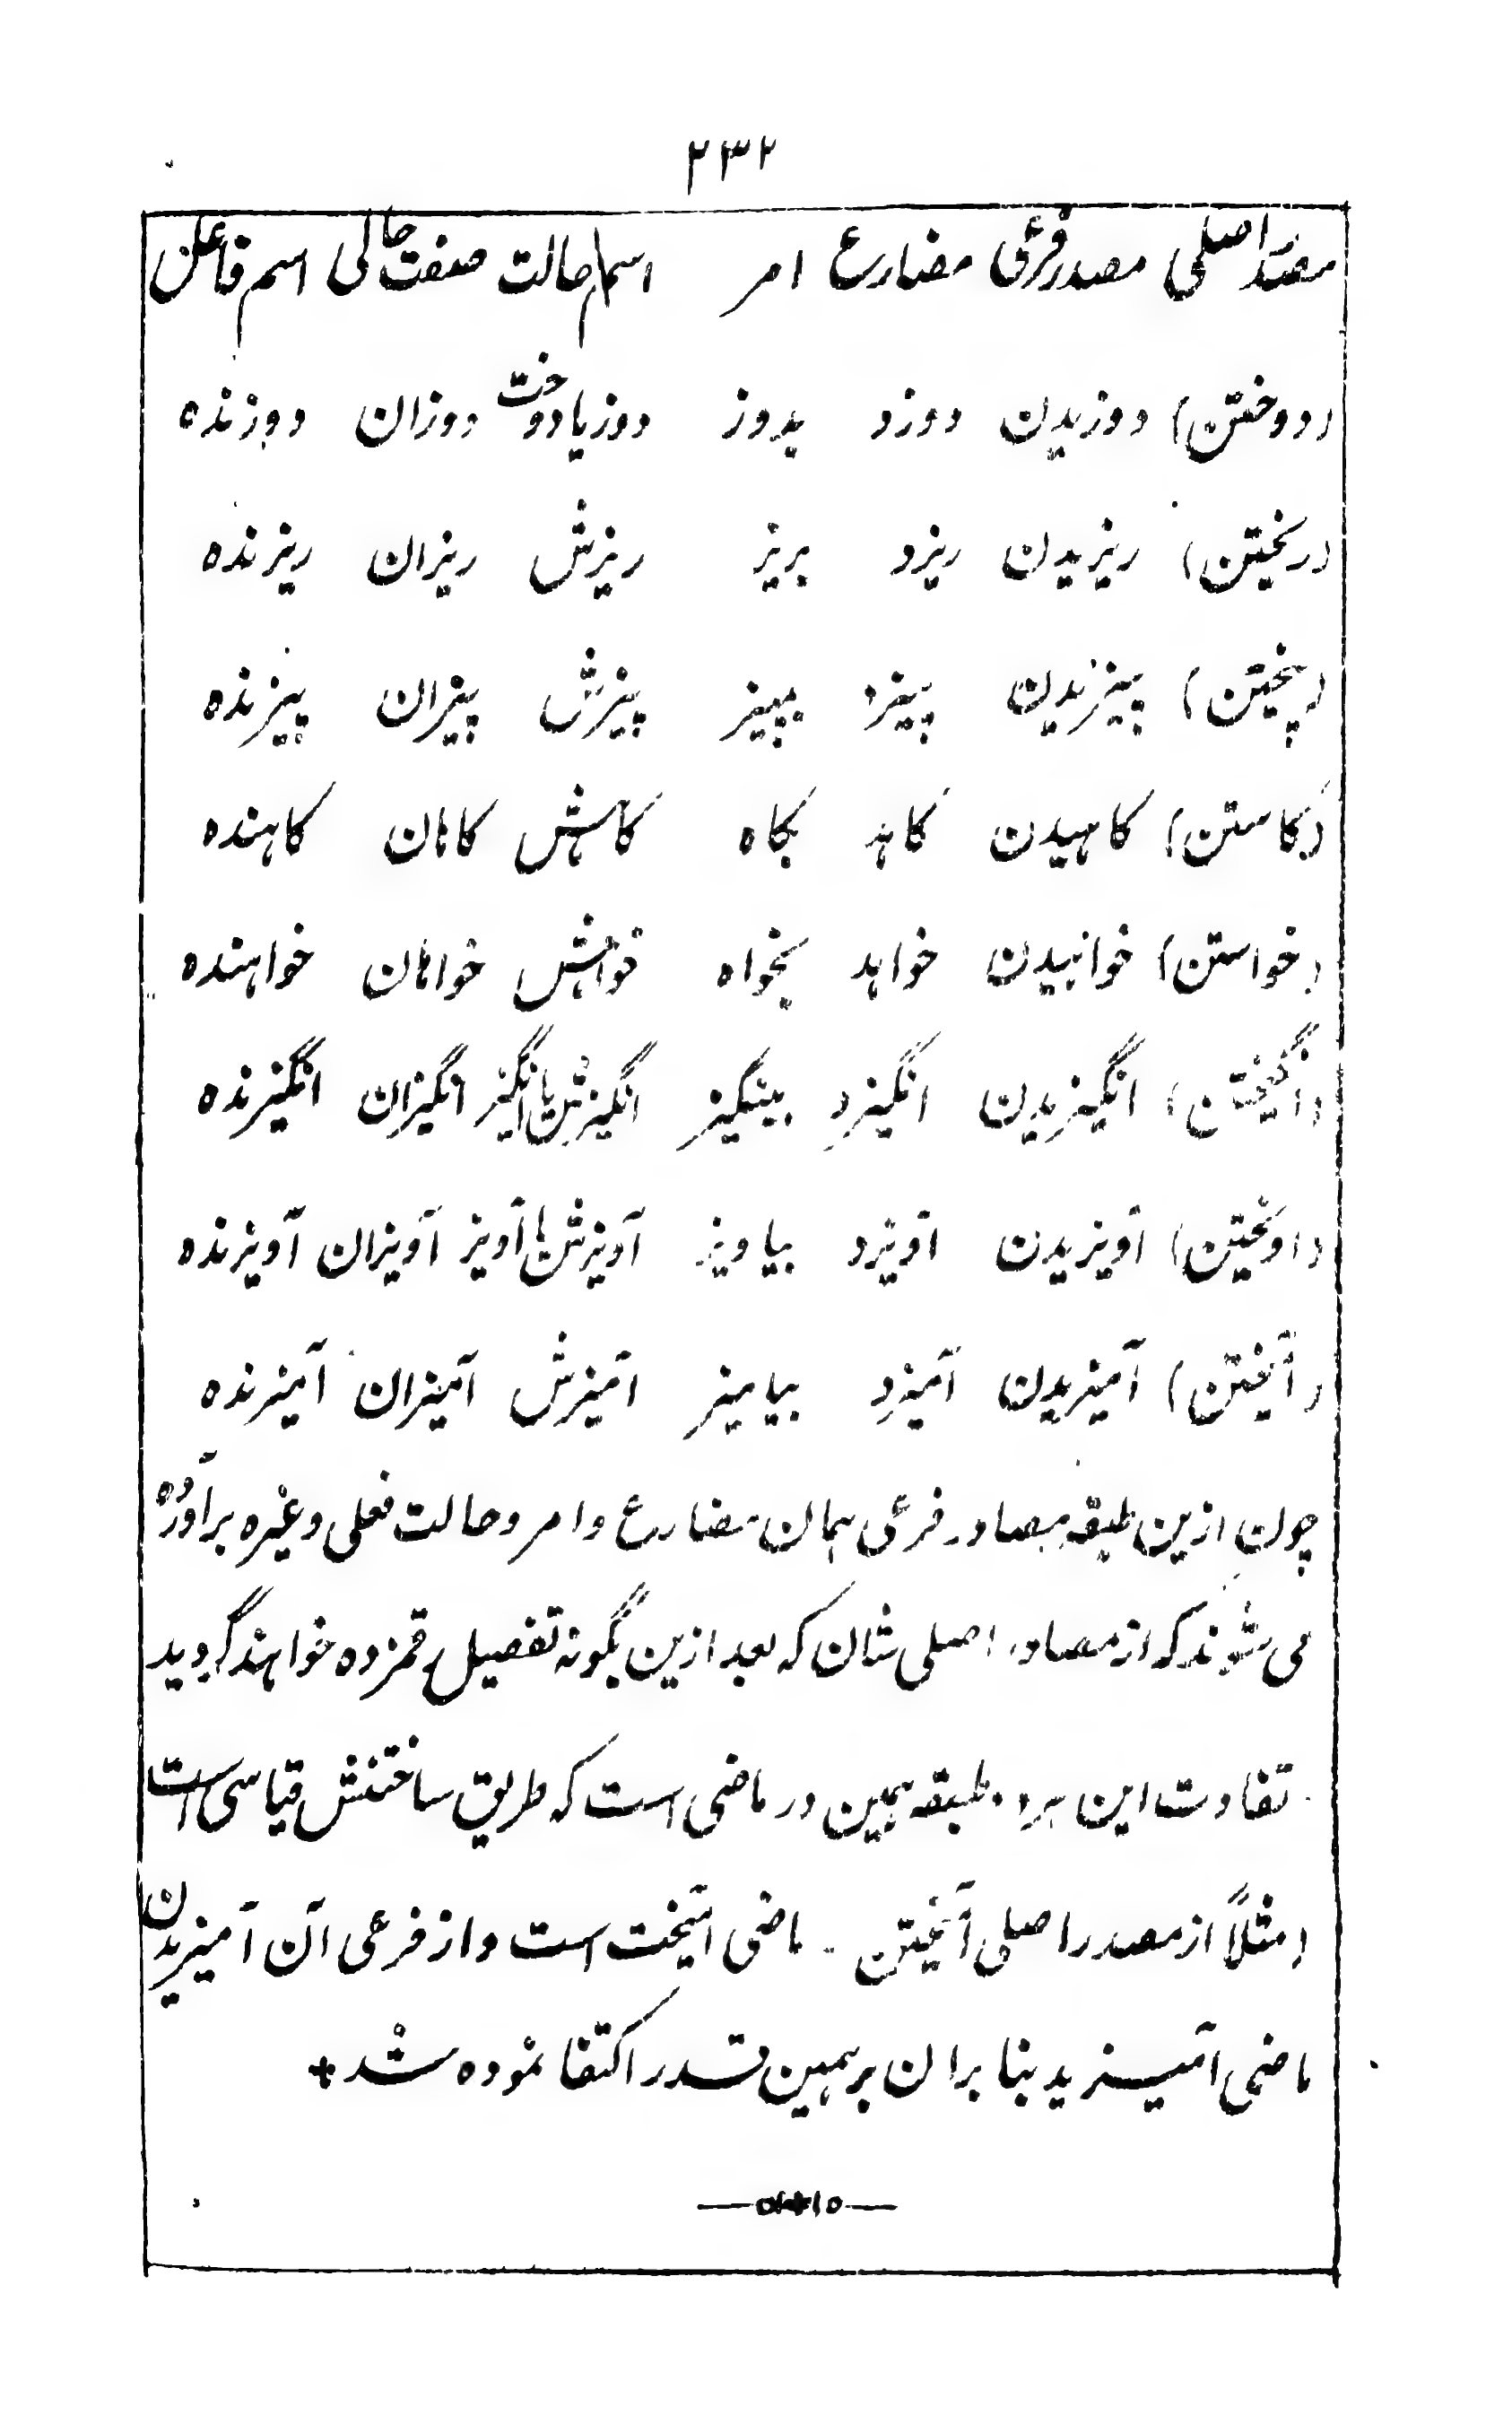 ۲۳۲
مصدر اصلی مصدر فرعی مضارع امر اسم حالت صفت حالی اسم فاعل
(دوختن) دوزیدن دوزد بدوز دوز یا دوخت دوزان دوزنده
(ریختن) ریزیدن ریزد بریز ریزش ریزان ریزنده
(پختن) پیزیدن پیزد بپیز پیزش پیزان پیزنده
(کاستن) کاهیدن کاهد بکاه کاهش کاهان کاهنده
(خواستن) خواهیدن خواهد بخواه خواهش خواهان خواهنده
(انگیختن) انگیزیدن انگیزد بینگیز انگیزش یا انگیز انگیزان انگیزنده
(اویختن) آویزیدن آویزد بیاویز آویزش یا آویز آویزان آویزنده
(آمیختن) آمیزیدن آمیزد بیامیز آمیزش آمیزان آمیزنده
چون ازین طبقه مصادر فرعی همان مضارع و امر و حالت فعلی و غیره برآورده
می شوند که از مصادر اصلی شان که بعد ازین بگونه تفصیل رقمزده خواهند گردید
تفاوت این هردو طبقه همین در ماضی است که طریق ساختنش قیاسی است
(مثلاً از مصدر اصلی آمیختن - ماضی آمیخت است و از فرعی آن آمیزیدن
ماضی آمیزید بنابران بر همین قدر اکتفا نموده شد +